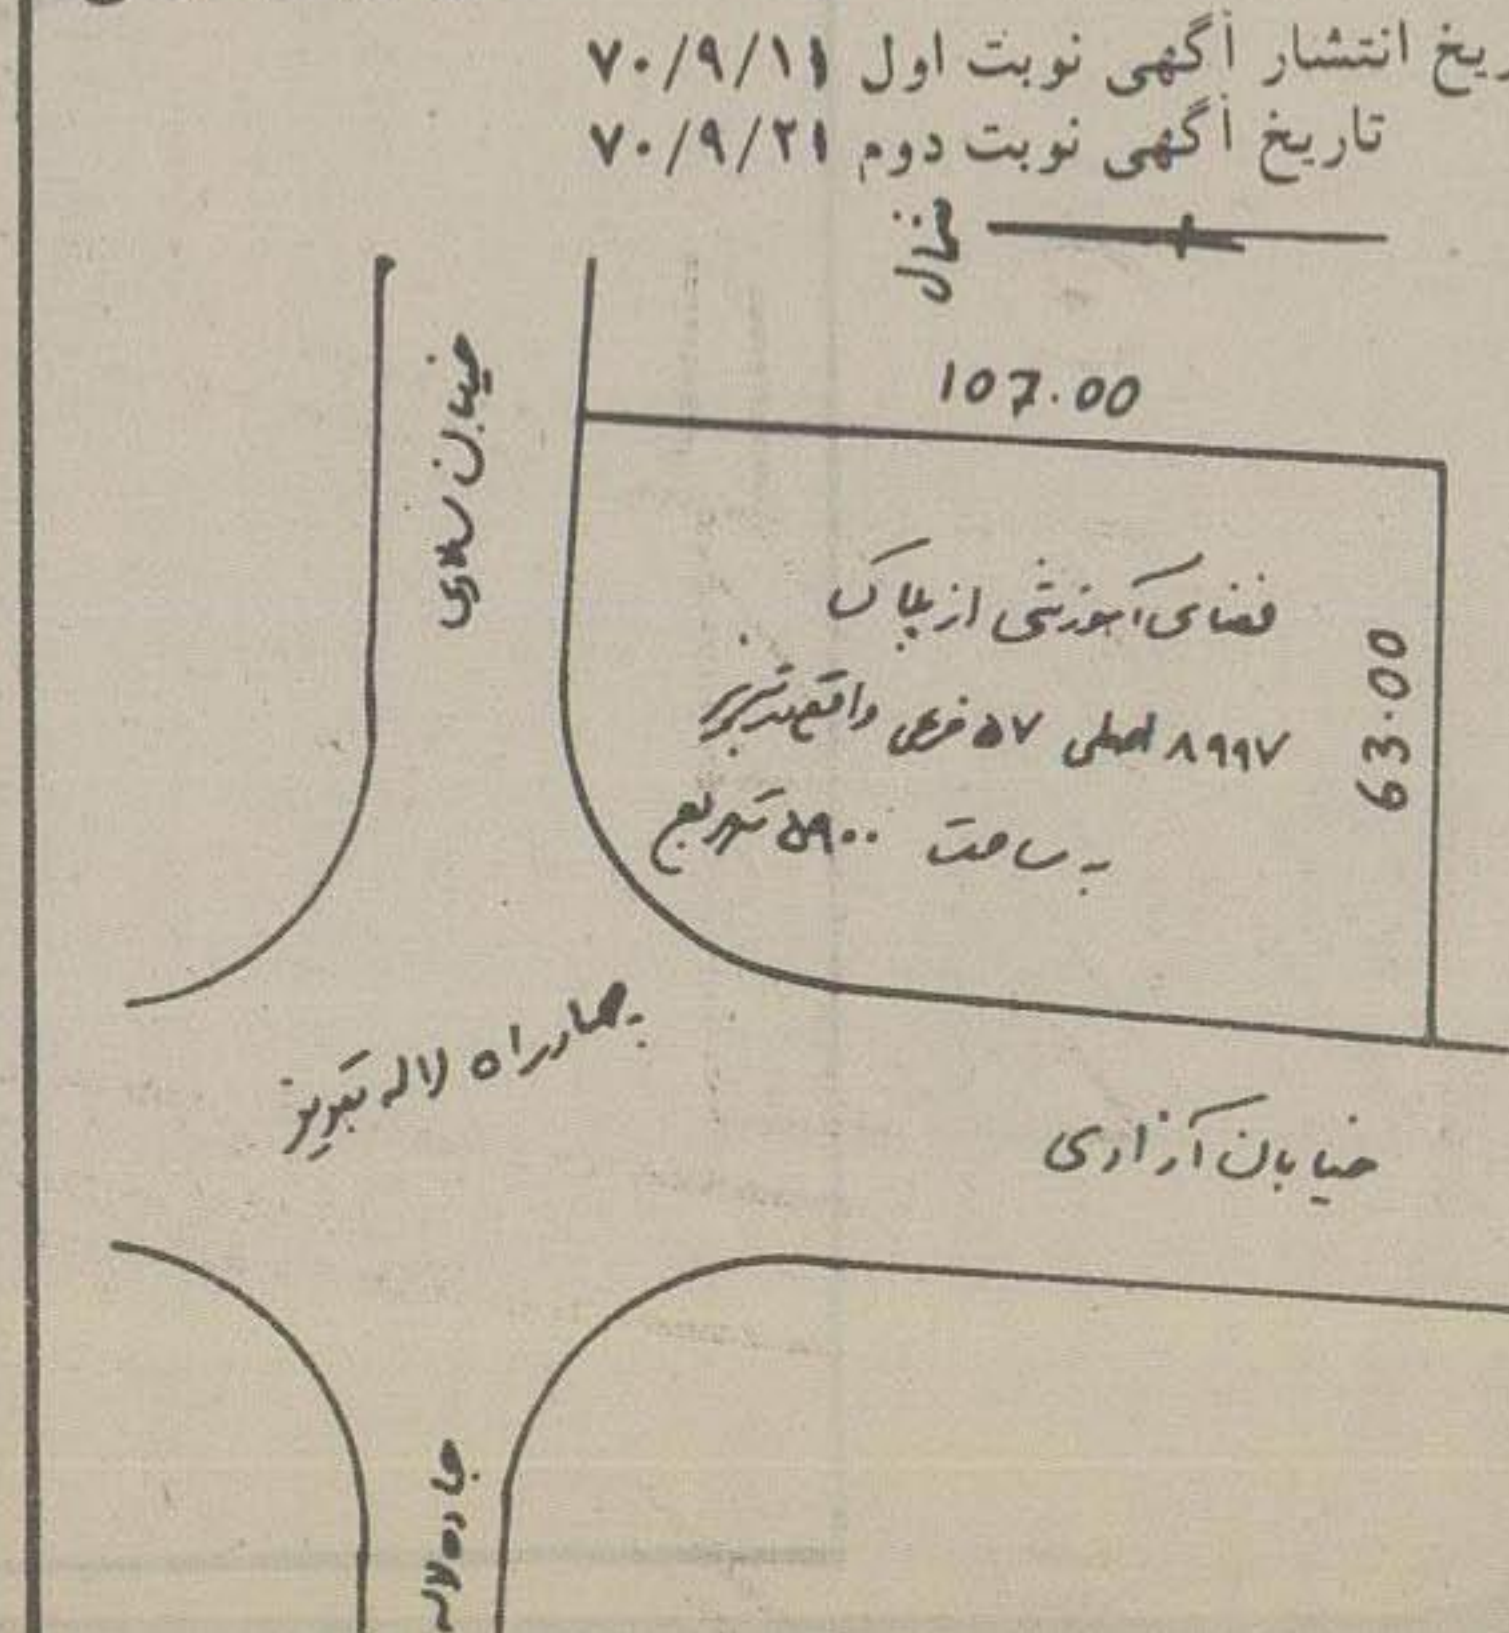 ریخ انتشار آگهی نوبت اول ۷۰/۹/۱۱
تاریخ آگهی نوبت دوم ۷۰/۹/۲۱
شمال
107.00
خیابان
فضای آموزشی از پلاک
۸۹۹۷ اصلی ۵۷ فرعی واقع در تبریز
به ساحت ۵۹۰۰ متر مربع
63.00
چهار راه لاله تبریز
خیابان آزادی
جاده لاله